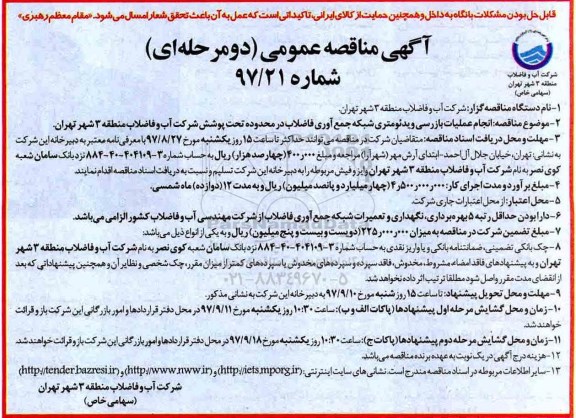 قابل حل بودن مشکلات با نگاه به داخل و همچنین حمایت از کالای ایرانی، تاکیداتی است که عمل به آن باعث تحقق شعار امسال می‌شود. «مقام معظم رهبری»
آگهی مناقصه عمومی (دو مرحله‌ای)
شماره ۹۷/۲۱
شرکت آب و فاضلاب
منطقه ۳ شهر تهران
(سهامی خاص)
۱- نام دستگاه مناقصه گزار: شرکت آب و فاضلاب منطقه ۳ شهر تهران.
۲- موضوع مناقصه: انجام عملیات بازرسی ویدئومتری شبکه جمع آوری فاضلاب در محدوده تحت پوشش شرکت آب و فاضلاب منطقه ۳ شهر تهران.
۳- مهلت و محل دریافت اسناد مناقصه: متقاضیان شرکت در مناقصه می‌توانند حداکثر تا ساعت ۱۵ روز یکشنبه مورخ ۹۷/۸/۲۷ با معرفی نامه معتبر به دبیرخانه این شرکت
به نشانی: تهران، خیابان جلال آل احمد - ابتدای آرش مهر (شهرآرا) مراجعه و مبلغ ۴۰۰٫۰۰۰ (چهارصد هزار) ریال به حساب شماره ۳-۴۰۴۱۰۹-۴۰-۸۸۴ نزد بانک سامان شعبه
کوی نصر به نام شرکت آب و فاضلاب منطقه ۳ شهر تهران واریز و فیش مربوطه را به دبیرخانه این شرکت تسلیم و نسبت به دریافت اسناد مناقصه اقدام نمایند.
۴- مبلغ برآورد و مدت اجرای کار: ۴٫۵۰۰٫۰۰۰٫۰۰۰ (چهار میلیارد و پانصد میلیون) ریال و به مدت ۱۲ (دوازده) ماه شمسی.
۵- محل اعتبار: از محل اعتبارات جاری شرکت.
۶- دارا بودن حداقل رتبه ۵ بهره برداری، نگهداری و تعمیرات شبکه جمع آوری فاضلاب از شرکت مهندسی آب و فاضلاب کشور الزامی می‌باشد.
۷- مبلغ تضمین شرکت در مناقصه به میزان ۲۲۵٫۰۰۰٫۰۰۰ (دویست و بیست و پنج میلیون) ریال و به یکی از انواع ذیل می‌باشد:
۸- چک بانکی تضمینی، ضمانتنامه بانکی و یا واریز نقدی به حساب شماره ۳-۴۰۴۱۰۹-۴۰-۸۸۴ نزد بانک سامان شعبه کوی نصر به نام شرکت آب و فاضلاب منطقه ۳ شهر
تهران و به پیشنهادهای فاقد امضاء، مشروط، مخدوش، فاقد سپرده و سپرده‌های مخدوش یا سپرده‌های کمتر از میزان مقرر، چک شخصی و نظایر آن و همچنین پیشنهاداتی که بعد
از انقضای مدت مقرر واصل شود مطلقا ترتیب اثر داده نخواهد شد.
۹- مهلت و محل تحویل پیشنهاد: تا ساعت ۱۵ روز شنبه مورخ ۹۷/۹/۱۰ به دبیرخانه این شرکت به نشانی مذکور.
۱۰- زمان و محل گشایش مرحله اول پیشنهادها (پاکات الف و ب): ساعت ۱۰:۳۰ روز یکشنبه مورخ ۹۷/۹/۱۱ در محل دفتر قراردادها و امور بازرگانی این شرکت باز و قرائت
خواهند شد.
۱۱- زمان و محل گشایش مرحله دوم پیشنهادها (پاکات ج): ساعت ۱۰:۳۰ روز یکشنبه مورخ ۹۷/۹/۱۸ در محل دفتر قراردادها و امور بازرگانی این شرکت باز و قرائت خواهند شد.
۱۲- هزینه درج آگهی در یک نوبت به عهده برنده مناقصه می‌باشد.
۱۳- سایر اطلاعات مربوطه در اسناد مناقصه مندرج است. نشانی های سایت اینترنتی: (http://iets.mporg.ir) و (http://www.nww.ir) و (http://tender.bazresi.ir)
شرکت آب و فاضلاب منطقه ۳ شهر تهران
(سهامی خاص)
۰۲۱-۸۸۳۴۹۶۷۰-۵